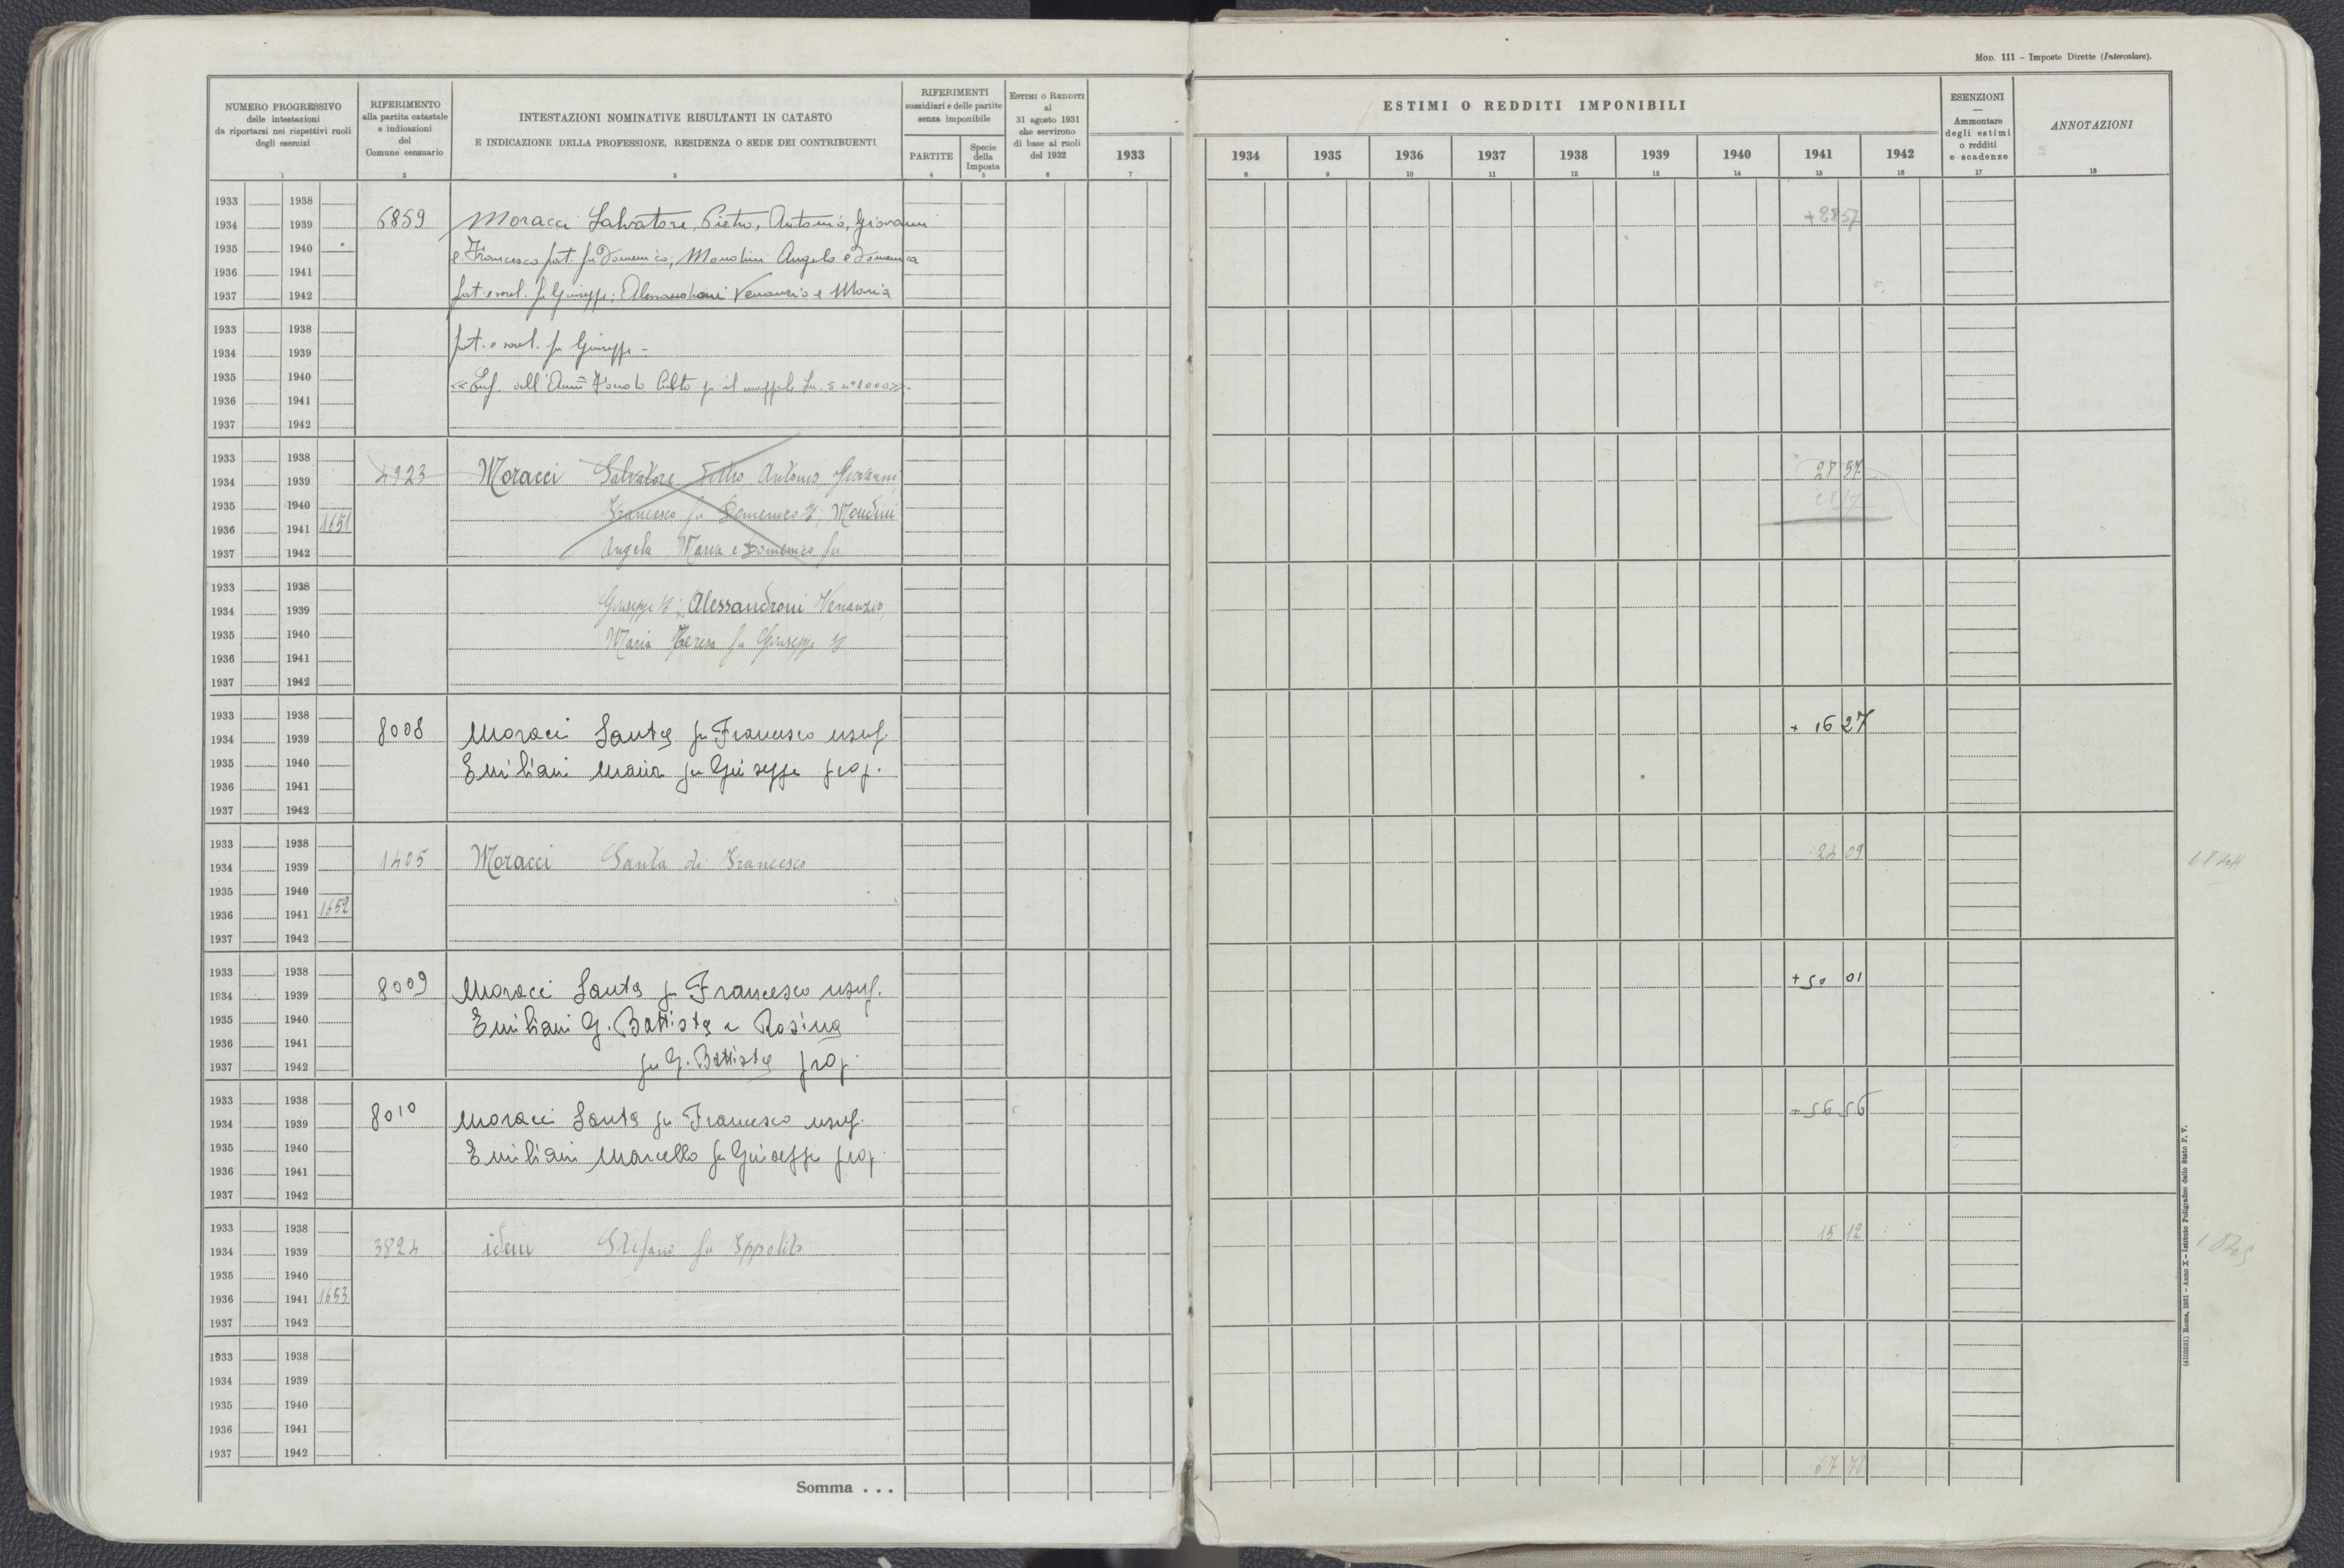 Mod. 111 – Imposte Dirette (Intercalare).
NUMERO PROGRESSIVO
delle intestazioni
da riportarsi nei rispettivi ruoli
degli esercizi
1
RIFERIMENTO
alla partita catastale
e indicazioni
del
Comune censuario
2
INTESTAZIONI NOMINATIVE RISULTANTI IN CATASTO
E INDICAZIONE DELLA PROFESSIONE, RESIDENZA O SEDE DEI CONTRIBUENTI
3
RIFERIMENTI
sussidiari e delle partite
senza imponibile
PARTITE
4
Specie
della
Imposta
5
Estimi o Redditi
al
31 agosto 1931
che servirono
di base ai ruoli
del 1932
6
1933
7
ESTIMI O REDDITI IMPONIBILI
1934 1935 1936 1937 1938 1939 1940 1941 1942
8 9 10 11 12 13 14 15 16
ESENZIONI
—
Ammontare
degli estimi
o redditi
e scadenze
17
ANNOTAZIONI
18
1933 1938
1934 1939 6859 Moracci Salvatore, Pietro, Antonio, Giovanni +28 57
1935 1940 e Francesco fat. fu Domenico, Mondini Angelo e Domenica
1936 1941
1937 1942 fat. e sorel. fu Giuseppe; Alessandroni Venanzio e Maria
1933 1938
1934 1939 fat. e sorel. fu Giuseppe –
1935 1940 all'Amm Fondo Culto 5 n° 1000»
1936 1941
1937 1942
1933 1938
1934 1939 4923 Moracci Salvatore Pietro, Antonio Giovanni 28 57
1935 1940 Francesco fu Domenico, Mondini
1936 1941 1651
1937 1942 Angela Maria e Domenico fu
1933 1938
1934 1939 Giuseppe; Alessandroni Venanzio,
1935 1940 Maria Teresa fu Giuseppe
1936 1941
1937 1942
1933 1938
1934 1939 8008 Moracci Santa fu Francesco usuf. + 16 27
1935 1940 Emiliani Maria fu Giuseppe prop.
1936 1941
1937 1942
1933 1938
1934 1939 1405 Moracci Santa di Francesco 24 09
1935 1940
1936 1941 1652
1937 1942
1933 1938
1934 1939 8009 Moracci Santa fu Francesco usuf. +50 01
1935 1940 Emiliani G. Battista e Rosina
1936 1941
1937 1942 fu G. Battista prop.
1933 1938
1934 1939 8010 Moracci Santa fu Francesco usuf. 56 56
1935 1940 Emiliani Marcello fu Giuseppe prop.
1936 1941
1937 1942
1933 1938
1934 1939 3824 idem Stefano fu Ippolito 15 12
1935 1940
1936 1941 1653
1937 1942
1933 1938
1934 1939
1935 1940
1936 1941
1937 1942
Somma . . . 67 78
(4103531) Roma, 1931 – Anno X – Istituto Poligrafico dello Stato P. V.